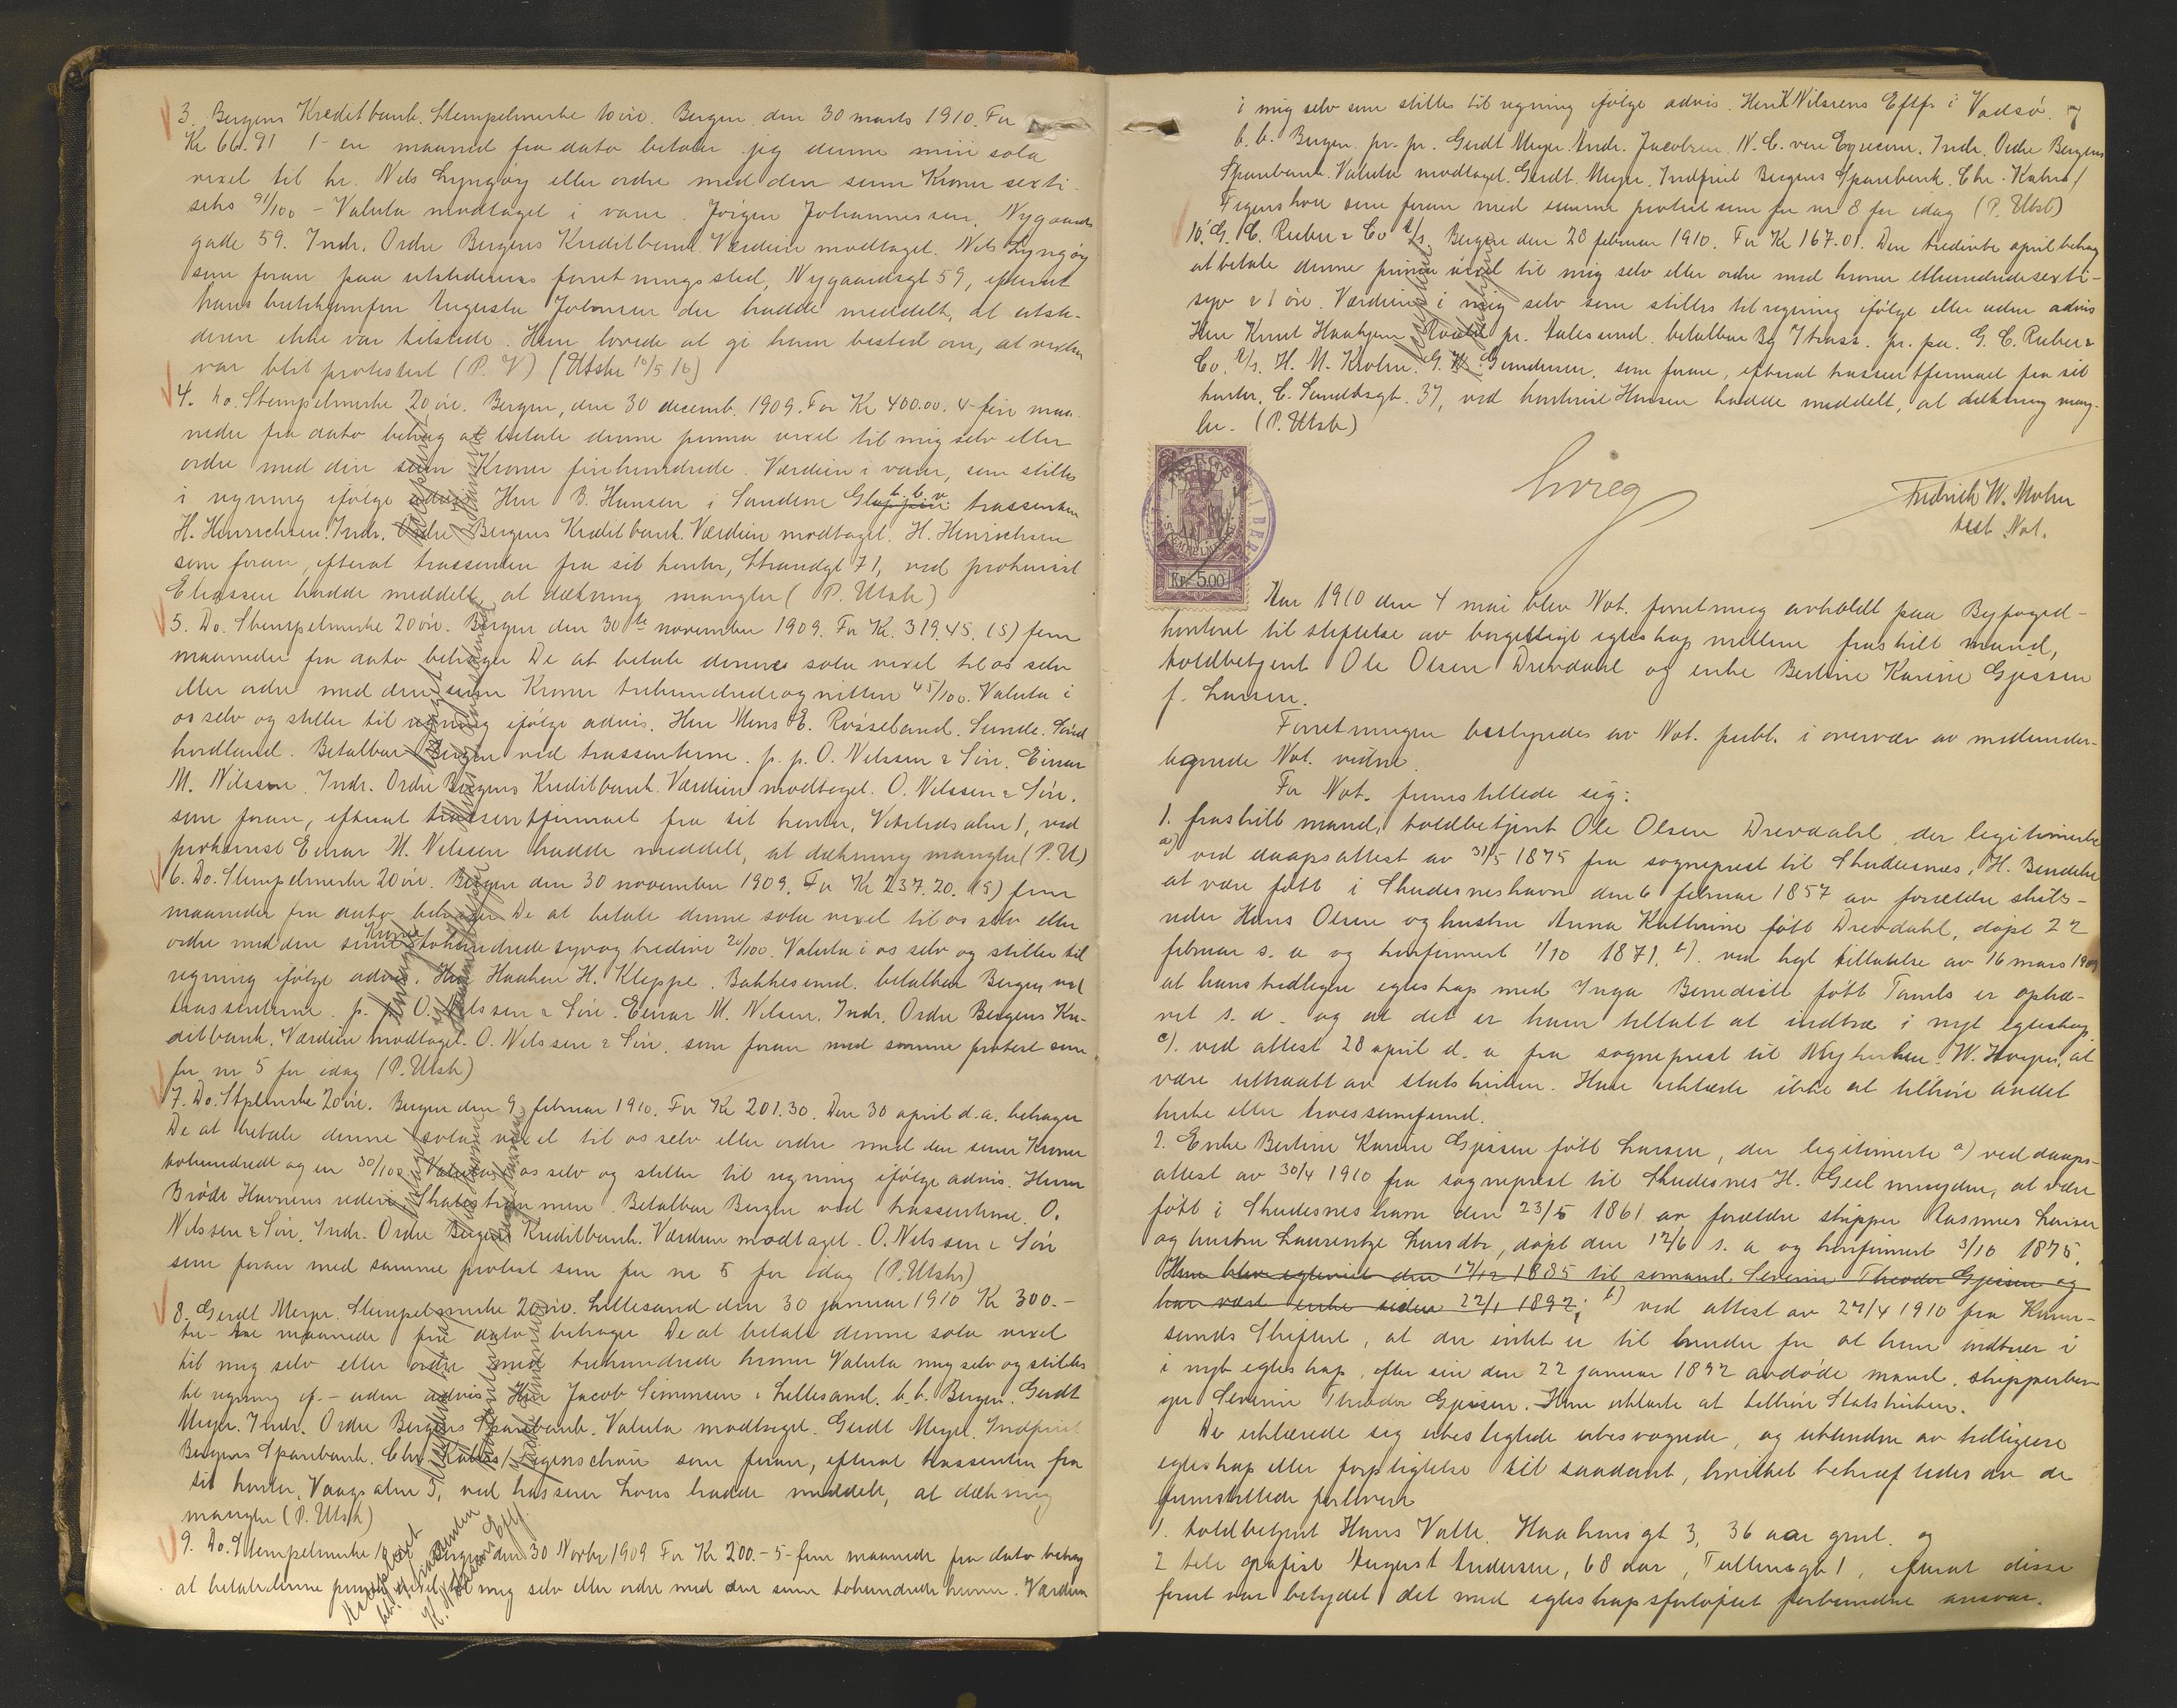 3. Bergens Kreditbank. Stempelmerke 10 øre. Bergen den 30 marts 1910. For
Kr 66.91 1 - en maaned fra dato betaler jeg denne min sola
vexel til hr. Nels Lyngøy eller ordre med den sum Kroner sexti-
seks 91/100 - Valuta modtaget i varer. Jørgen Johannessen, Nygaards
gade 59. Indr. Ordre Bergens Kreditbank. Værdien modtaget. Nils Lyngøy
som foran paa utstederens forretningssted, Nygaardsgt 59, efterat
hans butikjomfru Augusta Johnsen der hadde meddelt, at utste-
deren ikke var tilstede. Hun lovede at gi ham besked om, at vexlen
var blit protestert (P. V) (Utskr 10/5 16)
4. Do. Stempelmerke 20 øre. Bergen, den 30 decemb. 1909. For Kr 400.00. 4 - fire maa-
neder fra dato behag at betale denne prima vexel til mig selv eller
ordre med den sum Kroner firehundrede. Værdien i varer, som stilles
i regning ifølge advis. Herr B. Hansen i Sandene b. b. v. trassenten
H. Hinrichsen. Indr. Ordre Bergens Kreditbank. Værdien modtaget. H. Hinrichsen
som foran, efterat trassenten fra sit kontor, Strandgt 71, ved prokurist
Eliassen hadde meddelt, at dækning mangler (P. Utsk)
5. Do. Stempelmerke 20 øre. Bergen den 30te november 1909. For Kr. 319.45. (5) fem
maaneder fra dato behager De at betale denne sola vexel til os selv
eller ordre med den sum Kroner trehundredeognitten 45/100. Valuta i
os selv og stiller til regning ifølge advis. Herr Mons E. Røsseland. Sunde. Sønd
hordland. Betalbar Bergen ved trassenterne. p. p. O. Nilssen & Søn. Einar
M. Nilssen. Indr. Ordre Bergens Kreditbank. Værdien modtaget. O. Nilssen & Søn.
som foran, efterat trassentfirmaet fra sit kontor, Vetrlidsalm 1, ved
prokurist Einar M. Nilssen hadde meddelt, at dækning mangler (P. U)
6. Do. Stempelmerke 20 øre. Bergen den 30 november 1909. For Kr 237.20. (5) fem
maaneder fra dato behager De at betale denne sola vexel til os selv eller
ordre med den sum Kroner tohundredesyvogtredive 20/100. Valuta i os selv og stiller til
regning ifølge advis. Herr Haakon H. Kleppe. Bakkesund. betalbar Bergen ved
trassenterne. p. p. O. Nilssen & Søn. Einar M. Nilsen. Indr. Ordre Bergens Kre-
ditbank. Værdien modtaget. O. Nilssen & Søn. som foran med samme protest som
for nr 5 for idag (P. Utsk)
7. Do. Stplmrke 20 øre. Bergen den 9 februar 1910. For Kr 201.30. Den 30 april d. a. behager
De at betale denne sola vexel til os selv eller ordre med den sum Kroner
tohundrede og en 30/100. Valuta i os selv og stiller til regning ifølge advis. Herrer
Brødr Havnens rederi Skatestrømmen. Betalbar Bergen ved trassenterne. O.
Nilssen & Søn. Indr. Ordre Bergens Kreditbank. Værdien modtaget. O. Nilssen & Søn
som foran med samme protest som for nr 5 for idag (P. Utskr)
8. Gerdt Meyer. Stempelmerke 20 øre. Lillesand den 30 januar 1910 Kr 300.-
tre - maaneder fra dato behager De at betale denne sola vexel
til mig selv eller ordre med trehundrede kroner Valuta mig selv og stilles
til regning if. - uden advis Herr Jacob Simonsen i Lillesand. b. b. Bergen. Gerdt
Meyer. Indr. Ordre Bergens Sparebank. Valuta modtaget. Gerdt Meyer. Indfriet
Bergens Sparebank. Chr. Kahrs / Figenschou som foran, efterat trassenten fra
sit kontor, Vaagsalm 5, ved kasserer Lous hadde meddelt, at dækning
mangler (P. Utsk)
9. Do. Stempelmerke Bergen den 30 Novbr 1909 For Kr 200.- 5 - fem maaneder fra dato behag
at betale denne prima vexel til mig selv eller ordre med den sum tohundrede kroner. Værdien
i mig selv som stilles til regning ifølge advis. Henr K Nilsens Eftf. i Vadsø. 7
b. b. Bergen. pr. pr. Gerdt Meyer. Andr. Jacobsen. Indr. Ordre Bergens
Sparebank. Valuta modtaget. Gerdt Meyer. Indfriet Bergens Sparebank. Chr. Kahrs /
Figenschou som foran med samme protest som for nr 8 for idag (P. Utsk)
10. G. C. Rieber & Co A/s. Bergen den 28 februar 1910. For Kr 167.01. Den tredivte april behag
at betale denne prima vexel til mig selv eller ordre med kroner ethundredesexti-
syv & 1 øre. Værdien i mig selv som stilles til regning ifølge eller uden advis
Herr Knut Haakjem Roald pr. Aalesund. betalbar Bg / trass. pr. pa. G. C. Rieber &
Co. A/s. H. M. Krohn. G. Gundersen. som foran, efterat trassentfirmaet fra sit
kontor, C. Sundtsgt. 37, ved kontorist Hansen hadde meddelt, at dækning mang-
ler. (P. Utsk)
Fredrik W. Mohn
test. Not.
NORGE
STEMPELMERKE
Kr. 5.00
Aar 1910 den 4 mai blev Not. forretning avholdt paa Byfoged-
kontoret til stiftelse av borgerligt egteskap mellem fraskilt mand,
toldbetjent Ole Olsen Drevdahl og enke Bertine Karine Gjessen
f. Larsen.
Forretningen bestyredes av Not. publ. i overvær av medunder-
tegnede Not. vidne.
For Not. fremstillede sig:
1. fraskilt mand, toldbetjent Ole Olsen Drevdahl, der legitimerte
a) ved daapsattest av 31/5 1875 fra sogneprest til Skudesnæs, H. Bendeke
at være født i Skudesneshavn den 6 februar 1857 av forældre skibs-
reder Hans Olsen og hustru Anna Kathrine født Drevdahl, døpt 22
februar s. a og konfirmert 1/10 1871. b). ved kgl tilladelse av 16 mars 1909
at hans tidligere egteskap med Inga Benedicte født Tamls er ophæ-
vet s. d. og at det er ham tilladt at indtræ i nyt egteskap.
c). ved attest 28 april d. a fra sogneprest til Nykirken W. Hvoger, at
være uttraadt av statskirken. Han erklærte ikke at tilhøre andet
kirke eller troessamfund.
2. Enke Bertine Karine Gjessen født Larsen, der legitimerte a) ved daaps-
attest av 30/4 1910 fra sogneprest til Skudesnes H. Geelmuyden, at være
født i Skudesneshavn den 23/5 1861 av forældre skipper Rasmus Larsen
og hustru Laurentze Larsdtr, døpt den 12/6 s. a og konfirmert 3/10 1875.
Hun blev egteviet den 17/12 1885 til sømand Severin Theodor Gjessen og
har vært enke siden 22/1 1892; b) ved attest av 27/4 1910 fra Karm-
sunds Skifteret, at der intet er til hinder for at hun indtrær i
i nyt egteskap, efter sin den 22 januar 1892 avdøde mand, skipperbor-
ger Severin Theodor Gjessen. Hun erklærte at tilhøre Statskirken.
De erklærede sig ubeslegtede ubesvogrede, og ubundne av tidligere
egteskap eller forpligtelse til saadant, hvilket bekræftedes av de
fremstillede forlovere
1. toldbetjent Hans Valle. Haakonsgt 3, 36 aar gml. og
2 telegrafist August Andersen, 68 aar, Tullinsgt 1, efterat disse
forut var betydet det med egteskapsforløftet forbundne ansvar.